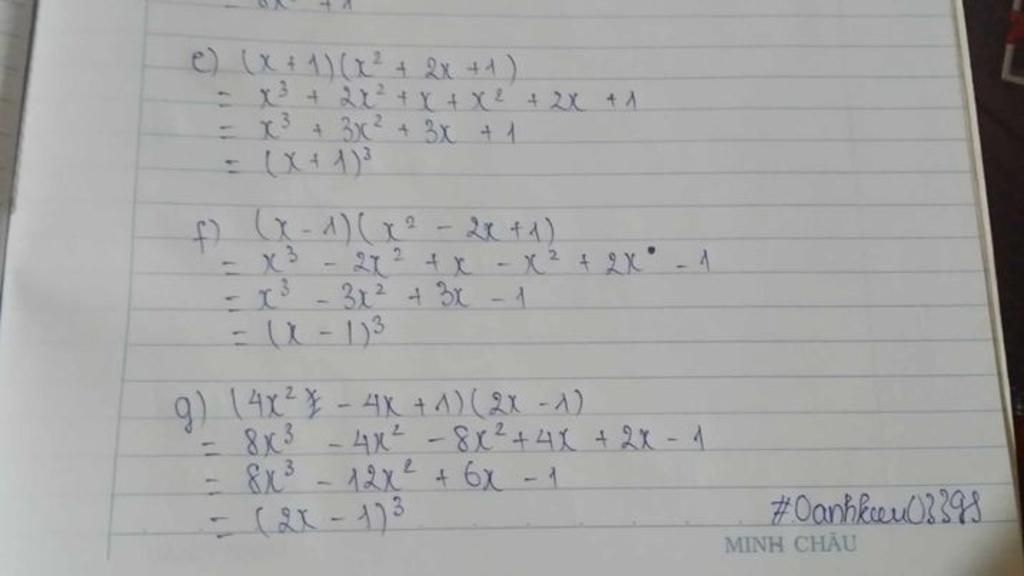 e) (x + 1)(x² + 2x + 1)
= x³ + 2x² + x + x² + 2x + 1
= x³ + 3x² + 3x + 1
= (x + 1)³
f) (x - 1)(x² - 2x + 1)
= x³ - 2x² + x - x² + 2x - 1
= x³ - 3x² + 3x - 1
= (x - 1)³
g) (4x² - 4x + 1)(2x - 1)
= 8x³ - 4x² - 8x² + 4x + 2x - 1
= 8x³ - 12x² + 6x - 1
= (2x - 1)³
MINH CHÂU